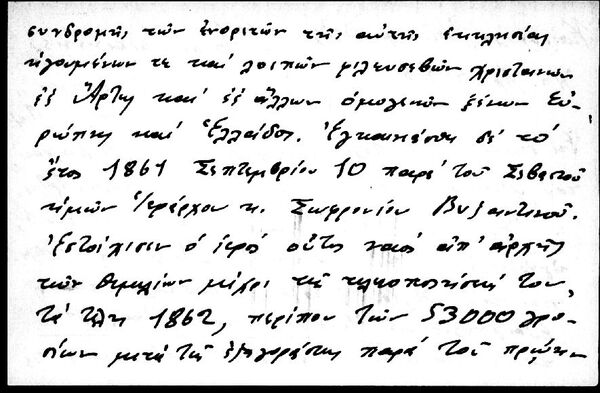 συνδρομῆς τῶν ἐνοριτῶν τῆς αὐτῆς ἐκκλησίας
ἡγουμένων τε καί λοιπῶν φιλευσεβῶν χριστιανῶν
ἐξ Ἄρτης καί ἐξ ἄλλων ὁμογενῶν ξένων Εὐ-
ρώπης καί Ἑλλάδος. Ἐγκαινιάσθη δέ τό
ἔτος 1861 Σεπτεμβρίου 10 παρά τοῦ Σεβαστοῦ
ἡμῶν Ἱεράρχου κ. Σωφρονίου Βυζαντινοῦ.
Ἐστοίχισεν ὁ ἱερός οὗτος ναός ἀπ' ἀρχῆς
τῶν θεμελίων μέχρι τῆς τελειοποιήσεώς του,
τά τέλη 1862, περίπου τῶν 53000 γρο-
σίων μετά τῆς ἐξαγοράσεως παρά τοῦ πρώην